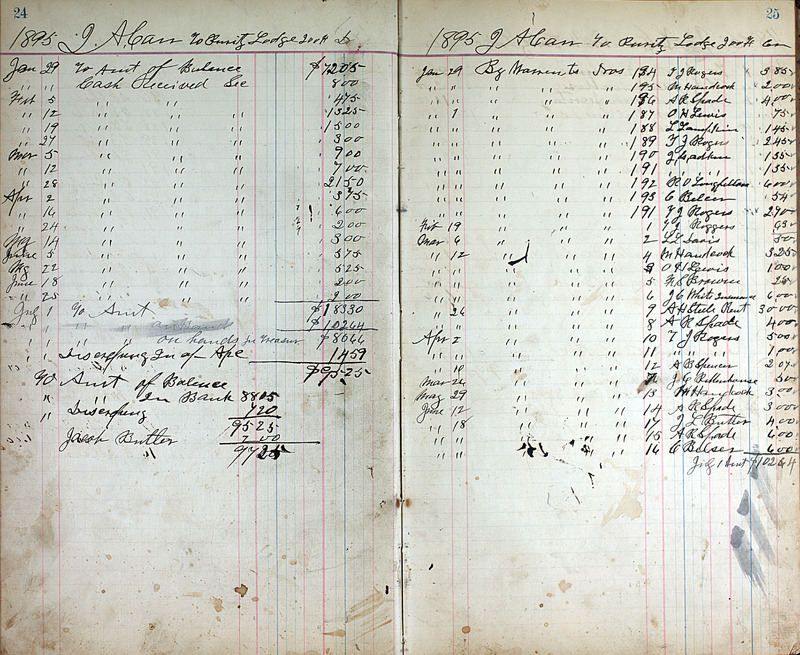 24
1895 J. A Carr To Purity Lodge 200 ft Dr
Jan 29 To Amt of Balance $7205
" " Cash Received See 800
Feb 5 " " " 475
" 12 " " " 1325
" 19 " " " 1500
" 27 " " " 300
Mar 5 " " " 900
" 12 " " " 700
" 28 " " " 2150
Apr 2 " " " 375
" 16 " " " 600
" 24 " " " 200
" 14 " " " 300
" 5 " " " 575
" 22 " " " 525
June 18 " " " 200
" 25 " " " 200
July 1 To Amt $18330
" " " on hand $10264
" on hands in Treasur $8066
" In of 1459
$9525
To Amt of Balance
" In Bank 8805
" 720
9525
Jacob Butler 200
9725
25
1895 J A Carr To Purity Lodge 200 ft Cr
Jan 29 By Warrents Nos 184 T J Rogers 385
" " " " " 185 M Handcock 200
" " " " " 186 A R Spade 400
" " " " 187 O H Lewis 75
" " " " " 188 L Lampkin 145
" " " " " 189 T J Rogers 245
" " " " " 190 J 135
" " " " " 191 " 135
" " " " " 192 R O Longfellow 600
" " " " " 193 C Belser 54
" " " " " 191 T J Rogers 290
Feb 19 " " " 1 T J Roggers
Mar 6 " " " 2 L L Davis 50
" 12 " " " 4 M Handcock 325
" " " " " O H Lewis 100
" " " " " 5 Browne 25
" " " " " 6 J G White Insurance 600
" 26 " " " 9 A H Steele Rent 3000
" " " " " 8 A R Spade 400
Apr 2 " " " 10 T J Rogers 500
" " " " " 11 " " 100
" 10 " " " 12 A B Spencer 207
Mar 26 " " " J G Rittenhouse 50
May 29 " " " 13 M Handcock 300
June 12 " " " 14 A R Spade 300
" 18 " " " 17 J L Butler 400
" " " " " 15 A R Spade 600
" " " " " 16 C Belser 600
July 1 Amt $10264